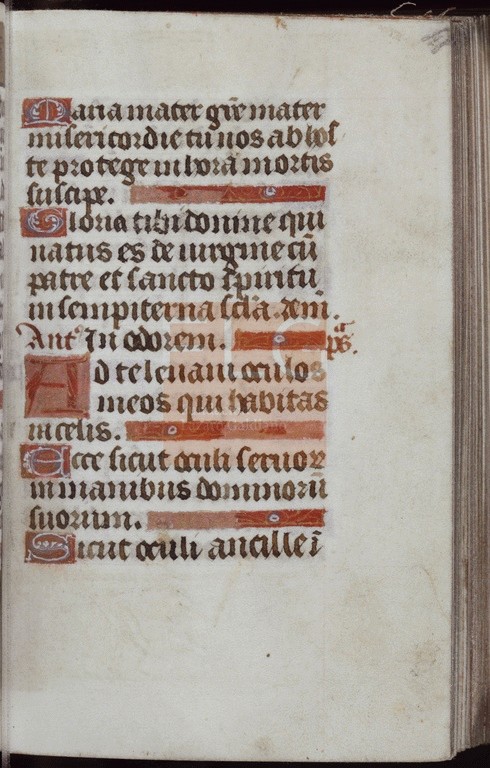 Maria mater gr̄e mater
misericordie tu nos ab hos
te protege in hora mortis
suscipe.
Gloria tibi domine qui
natus es de uirgine cū
patre et sancto spiritu
in sempiterna scl̄a. am̄.
Antᵒ In odorem. ps̄.
Ad te leuaui oculos
meos qui habitas
in celis.
Ecce sicut oculi seruoꝝ
in manibus dominorū
suorum.
Sicut oculi ancille ī